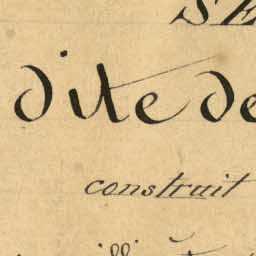 SE
dite de
construit